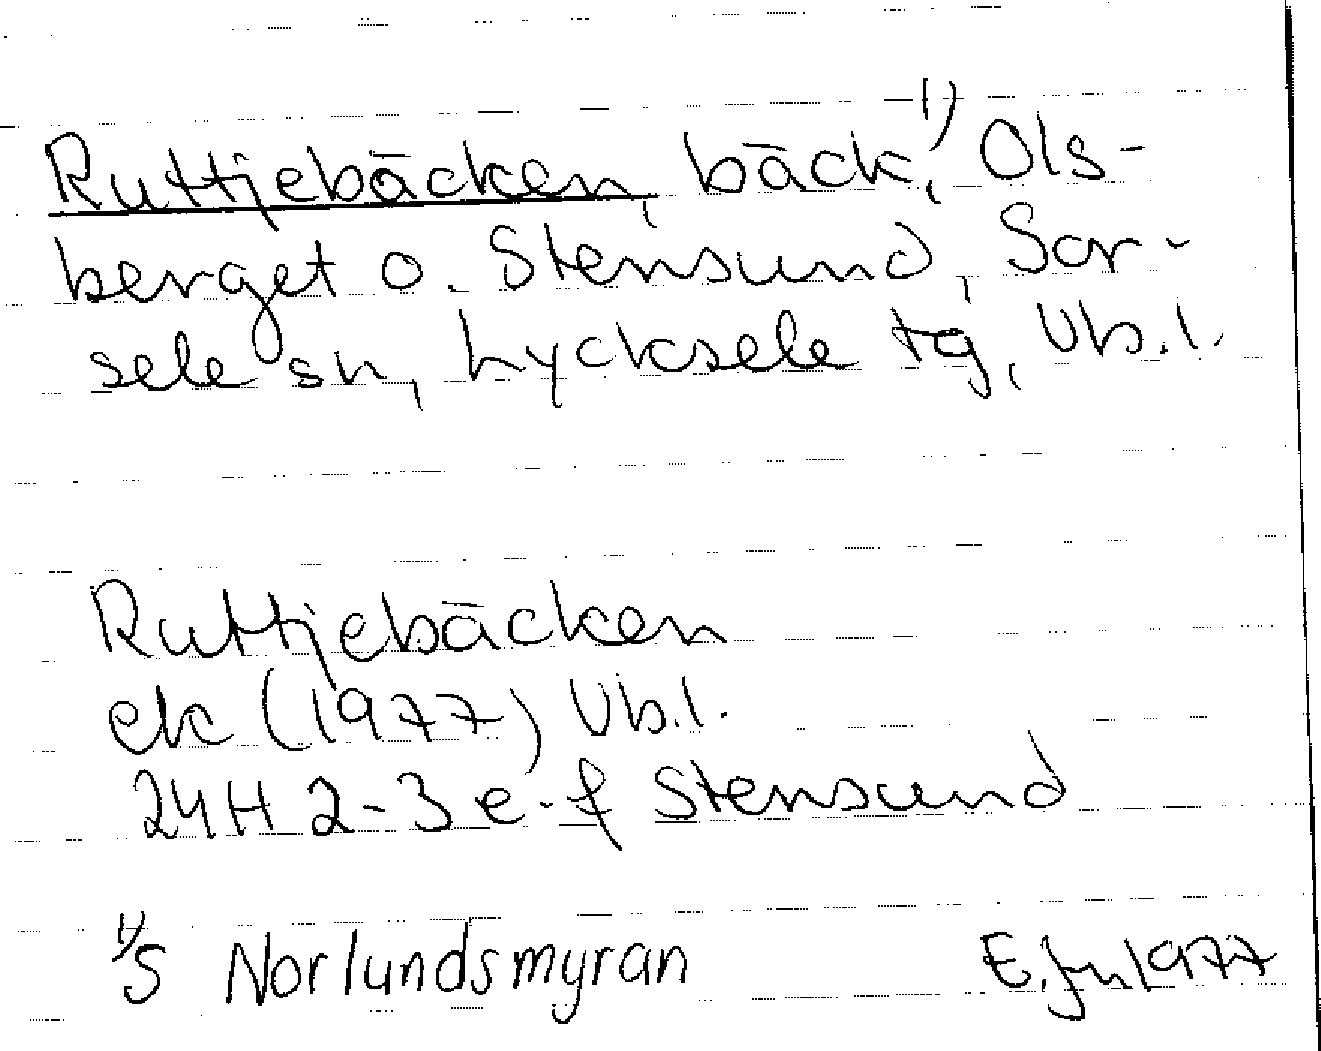 Ruttjebäcken, bäck,¹⁾ Ols-
berget o. Stensund, Sor-
sele sn, Lycksele tg, Vb.l.
Ruttjebäcken
ek (1977) Vb.l.
24H 2-3 e-f Stensund
¹⁾S Norlundsmyran
E. 1977